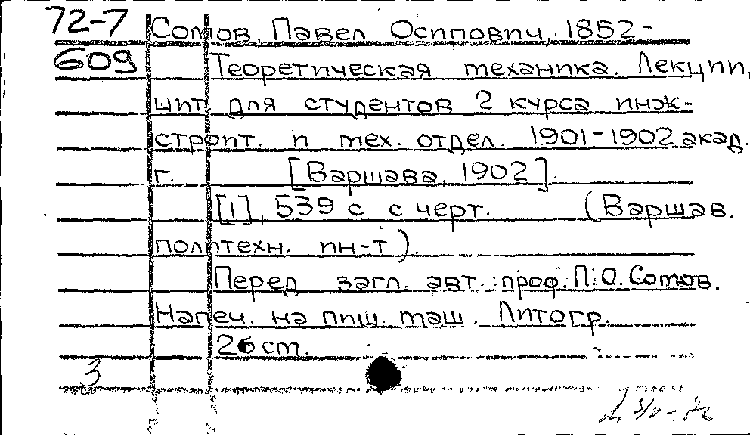 72-7 Сомов, Павел Осипович, 1852-
609 Теоретическая механика. Лекции,
чит. для студентов 2 курса инж-
строит. и мех. отдел. 1901-1902 акад.
г. [Варшава, 1902].
[1], 539 с. с черт. (Варшав.
политехн. ин-т)
Перед загл. авт.: проф. П.О. Сомов.
Напеч. на пиш. маш. Литогр.
26 см.
3